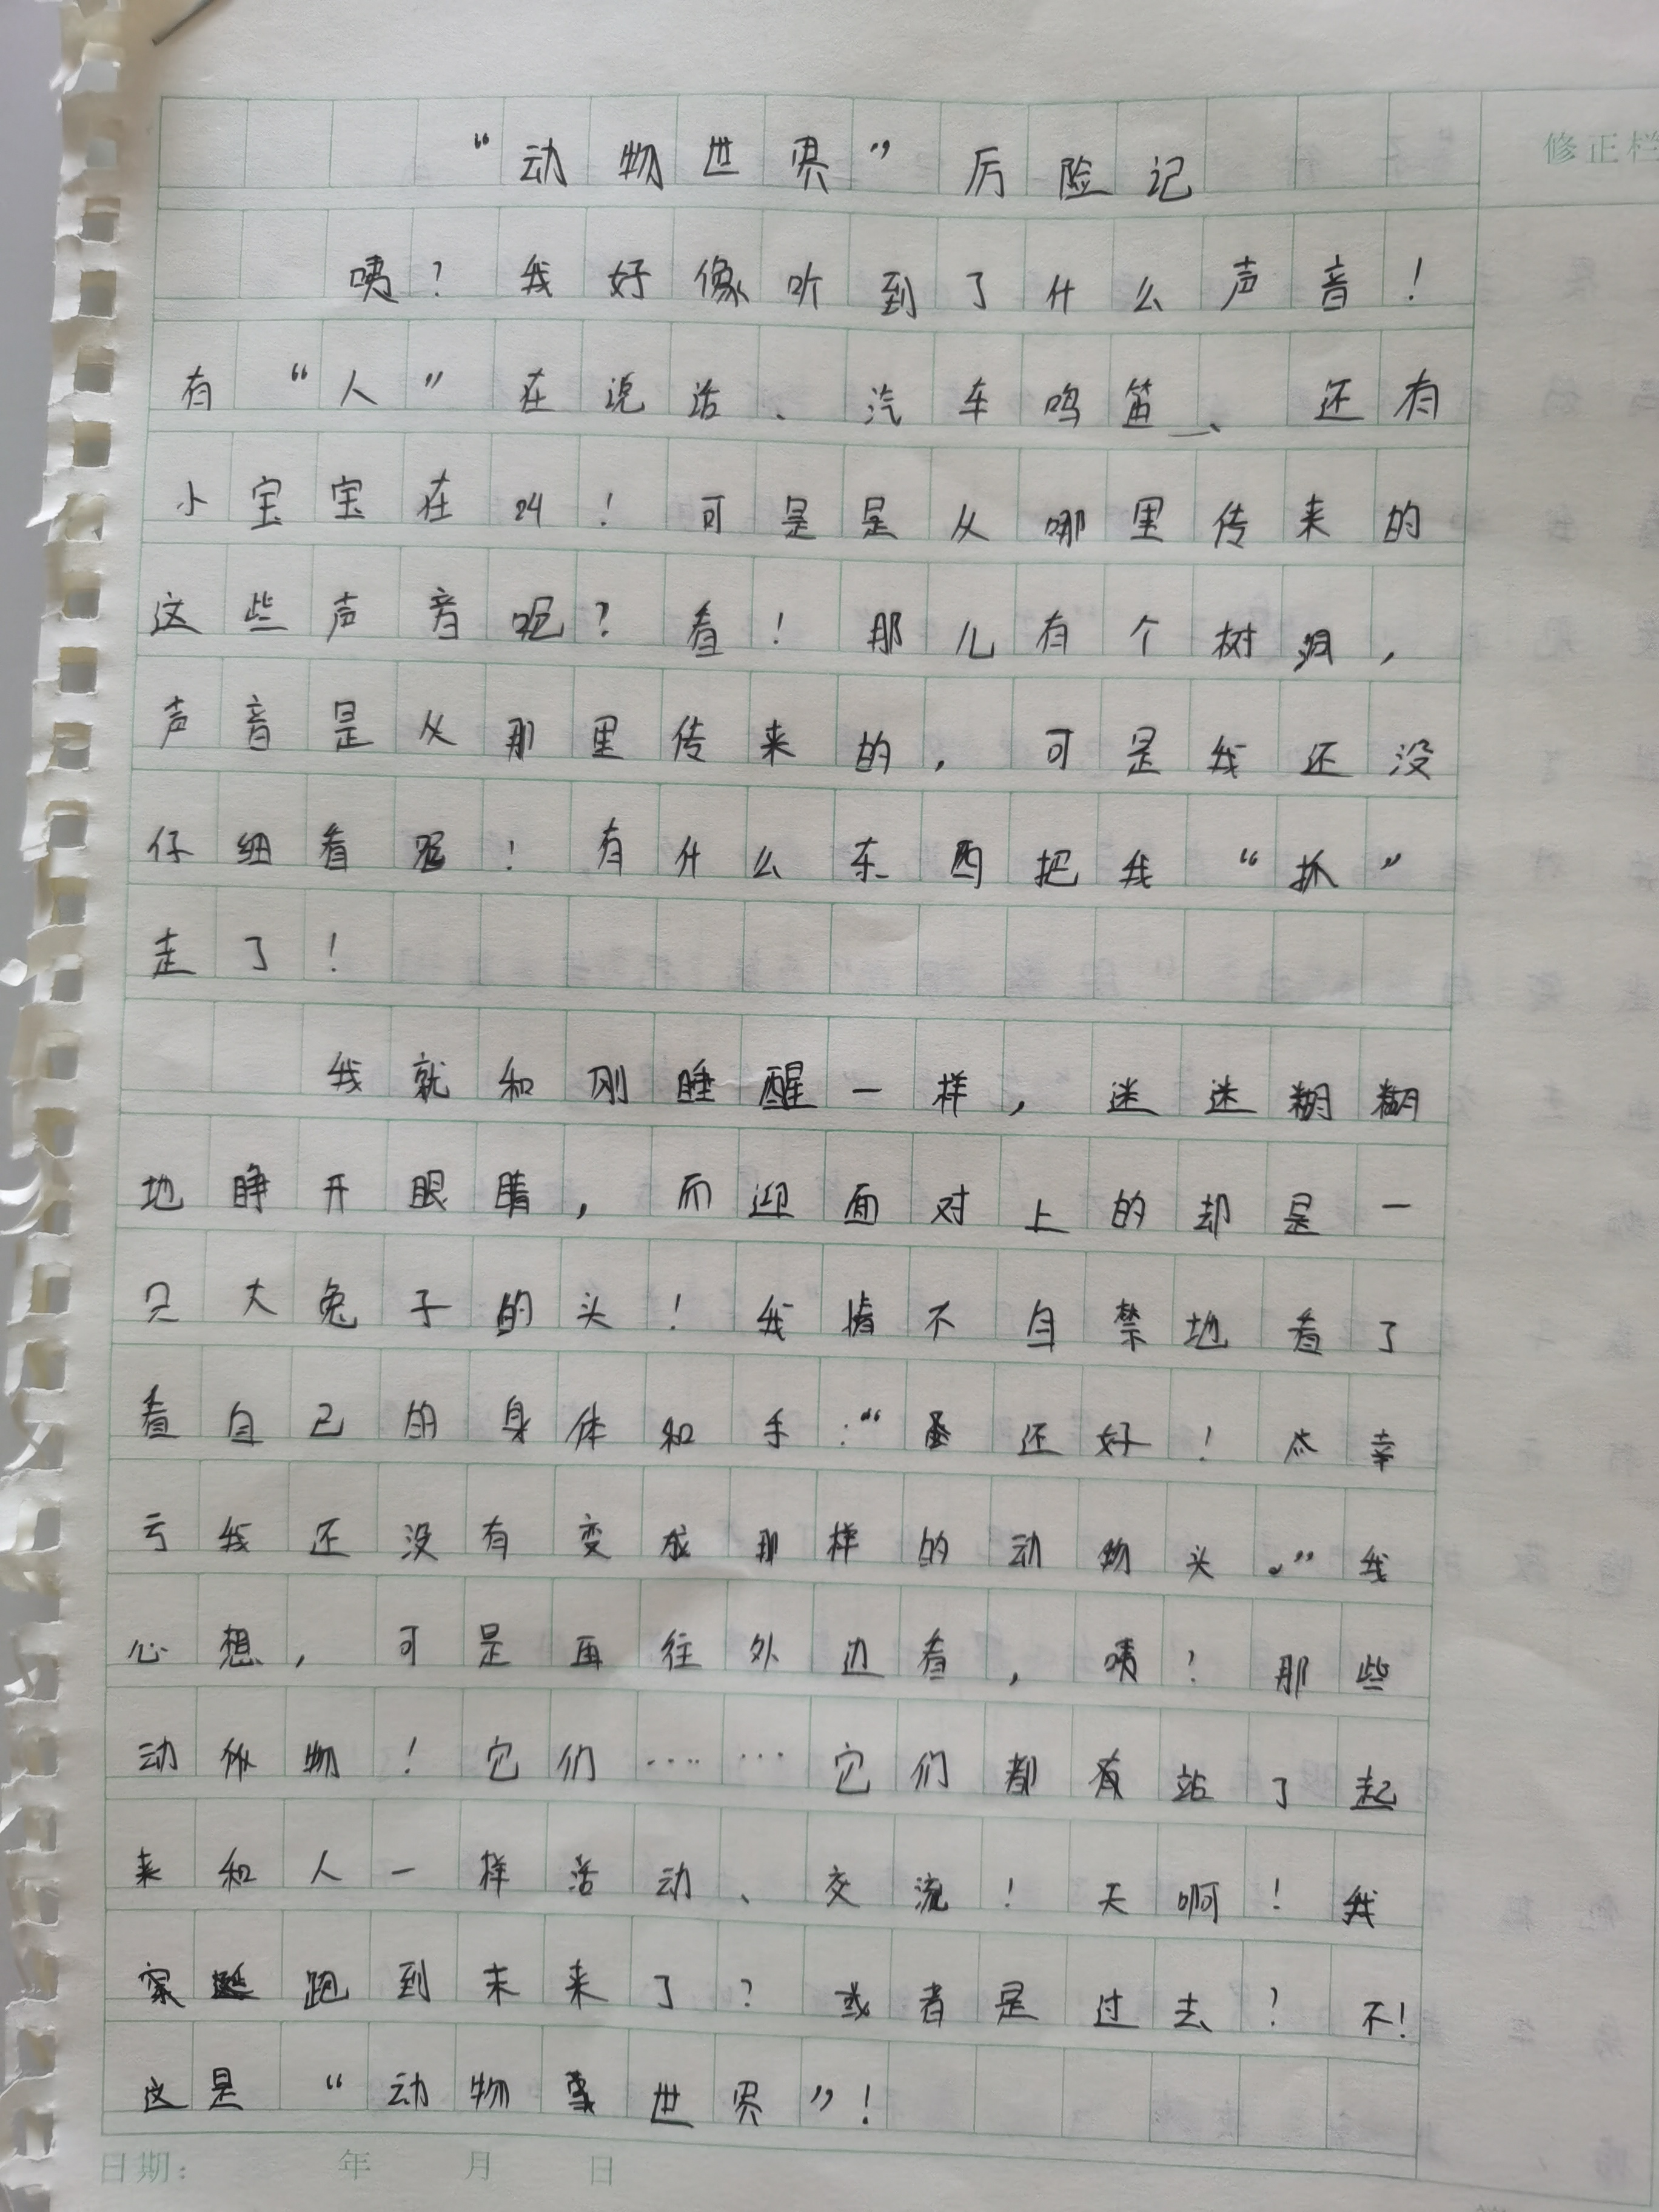 “动物世界”厉险记
修正栏
咦?我好像听到了什么声音!
有“人”在说话、汽车鸣笛、还有
小宝宝在叫!可是是从哪里传来的
这些声音呢?看!那儿有个树洞,
声音是从那里传来的,可是我还没
仔细看呢!有什么东西把我“抓”
走了!
我就和刚睡醒一样,迷迷糊糊
地睁开眼睛,而迎面对上的却是一
只大兔子的头!我情不自禁地看了
看自己的身体和手:“还好!太幸
亏我还没有变成那样的动物头。”我
心想,可是再往外边看,咦?那些
动物!它们……它们都有站了起
来和人一样活动、交流!天啊!我
家跑到未来了?或者是过去?不!
这是“动物世界”!
日期: 年 月 日